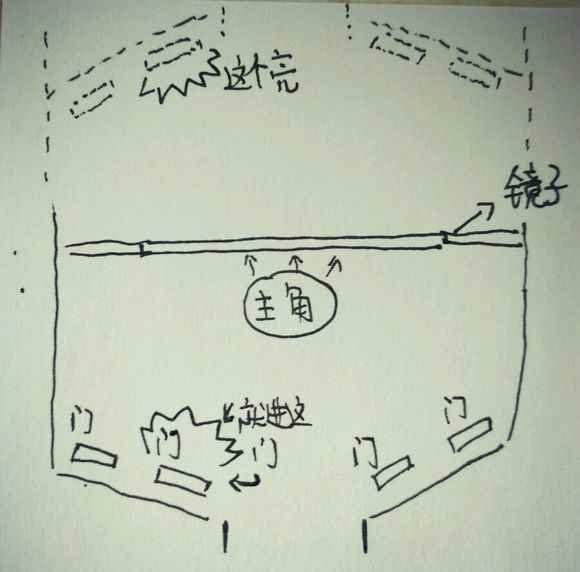 这个亮
镜子
主角
门
门
实进这
门
门
门